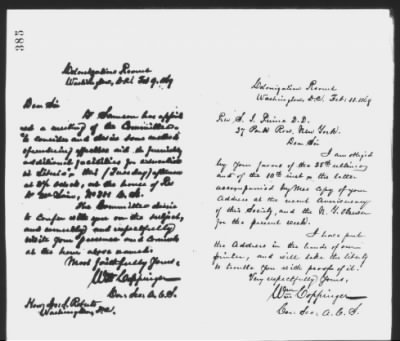 385
Colonization Rooms
Washington, D.C. Feb 9. 1869
Dear Sir
Dr Samson has appoint
ed a meeting of the Committee
to consider and devise some method
of providing
additional facilities for education
in Liberia this (Tuesday) afternoon
at o'clock, at the house of Rev
Dr
The Committee desire
to confer with you on the subject,
and earnestly and respectfully
invite your presence and counsels
at the hour above named.
Most faithfully Yours,
Wm Coppinger
Cor. Sec. A.C.S.
Hon. Jos. J. Roberts
Washington,
Colonization Rooms
Washington, D.C. Feb. 11. 1869
Rev. S. I. Prime D.D.
37 Park Row, New York.
Dear Sir
I am obliged
by your favor of the 28th ultimo
and of the 10th inst & the latter
accompanied by copy of your
Address at the recent Anniversary
of this Society, and the N. Y. Observer
for the present week.
I have put
the Address in the hands of our
printer, and will take the liberty
to trouble you with proofs of it.
Very respectfully Yours,
Wm Coppinger
Cor. Sec. A.C.S.